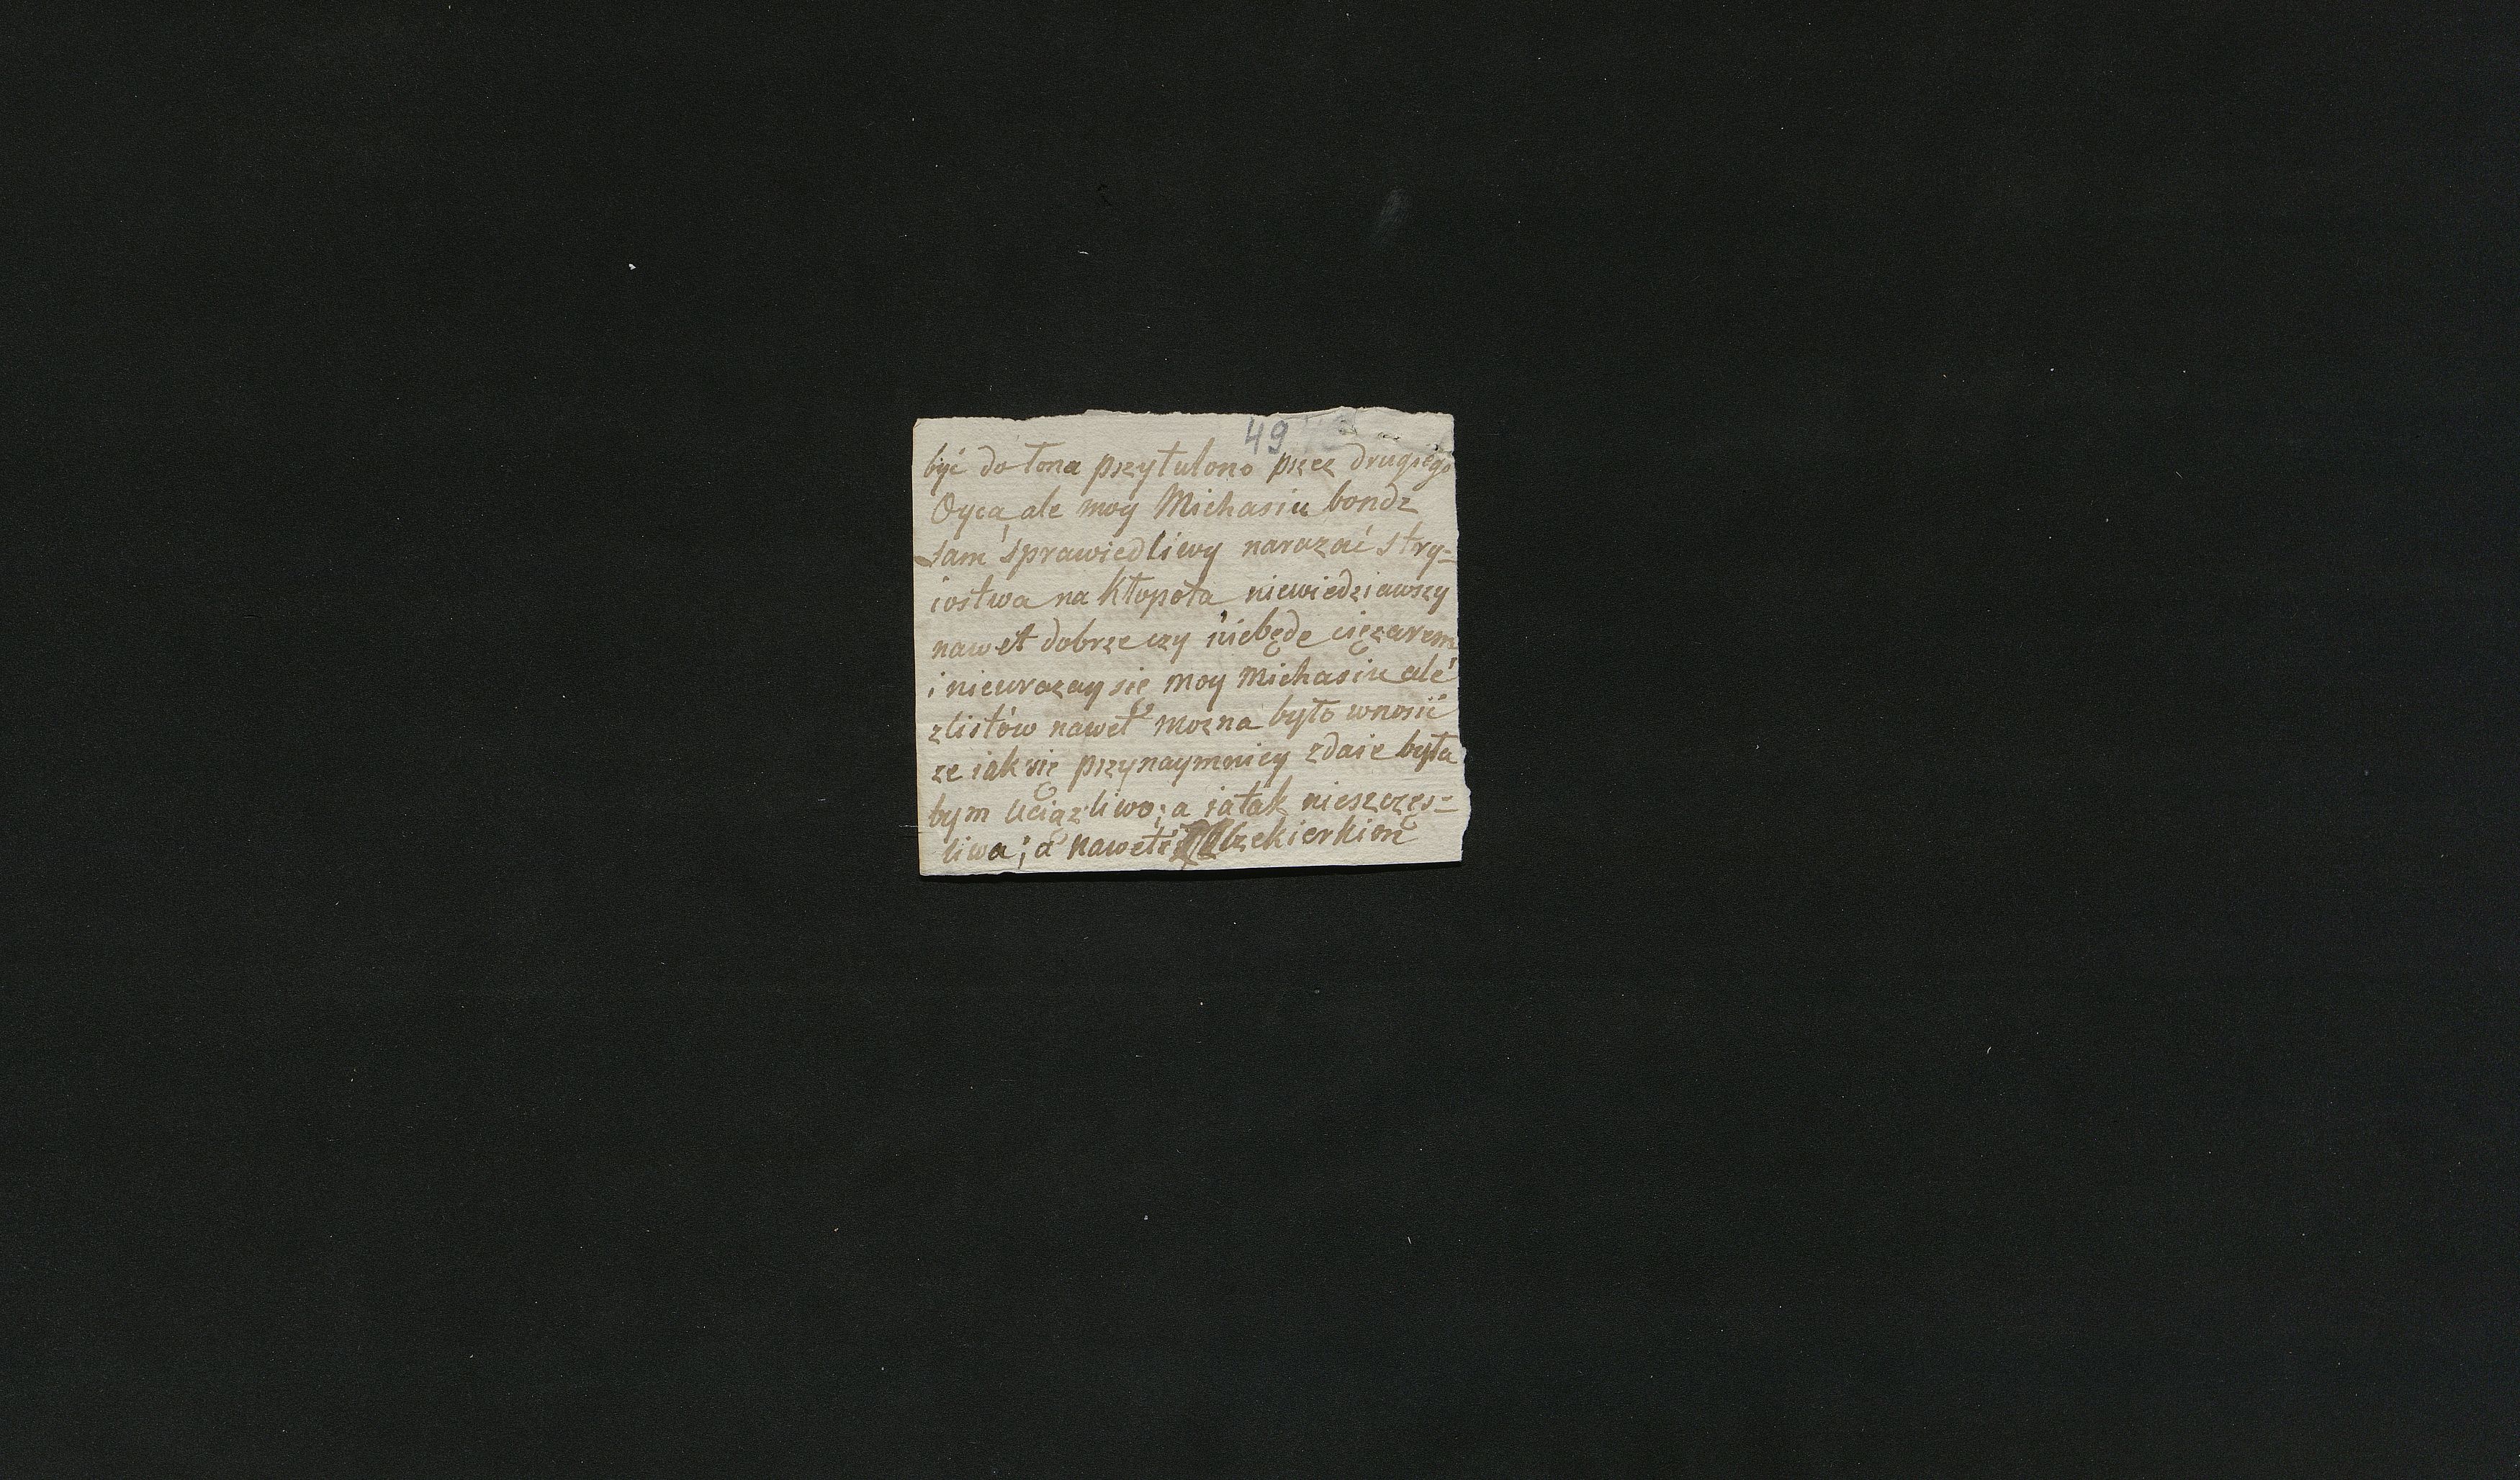 49
być do łona przytulono przez drugiego
Oyca, ale moy Michasiu bondz
sam sprawiedliwy narazać stry=
iostwa na kłopota niewiedziawszy
nawet dobrze czy niebędę ciężarem
i nieurazay się moy Michasiu ale
zlistów nawet mozna było wnosić
ze iak się przynaymniey zdaie była
bym uciązliwo; a ia tak nieszczęs=
liwa; a nawet i zekierkim